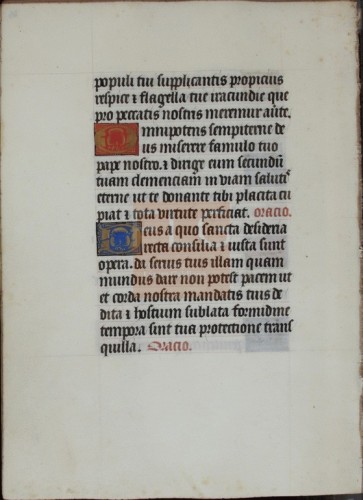 populi tui supplicantis propicius
respice ⁊ flagella tue iracundie que
pro peccatis nostris meremur auẽte.
Omnipotens sempiterne de
us miserere famulo tuo
pape nostro. ⁊ dirige eum secundũ
tuam clemenciam in viam saluti˜
eterne ut te donante tibi placita cu
piat ⁊ tota virtute perficiat. oracio.
Deus a quo sancta desideria
recta consilia ⁊ iusta sunt
opera. da seruis tuis illam quam
mundus dare non potest pacem ut
et corda nostra mandatis tuis de
dita ⁊ hostium sublata formidine
tempora sint tua protectione trans
quilla. Oracio.